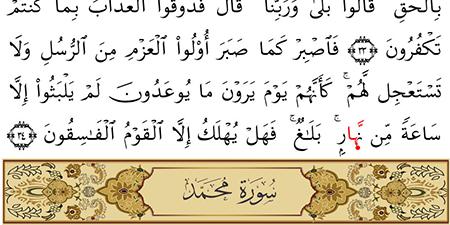 بِٱلْحَقِّ ۖ قَالُوا۟ بَلَىٰ وَرَبِّنَا ۚ قَالَ فَذُوقُوا۟ ٱلْعَذَابَ بِمَا كُنتُمْ
تَكْفُرُونَ ۝٣٣ فَٱصْبِرْ كَمَا صَبَرَ أُو۟لُوا۟ ٱلْعَزْمِ مِنَ ٱلرُّسُلِ وَلَا
تَسْتَعْجِل لَّهُمْ ۚ كَأَنَّهُمْ يَوْمَ يَرَوْنَ مَا يُوعَدُونَ لَمْ يَلْبَثُوٓا۟ إِلَّا
سَاعَةً مِّن نَّهَارٍۭ ۚ بَلَـٰغٌ ۚ فَهَلْ يُهْلَكُ إِلَّا ٱلْقَوْمُ ٱلْفَـٰسِقُونَ ۝٣٤
سُورَةُ مُحَمَّد